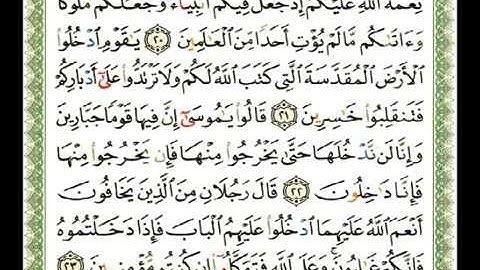 نِعْمَةَ اللَّهِ عَلَيْكُمْ إِذْ جَعَلَ فِيكُمْ أَنْبِيَاءَ وَجَعَلَكُمْ مُلُوكًا
وَءَاتَىٰكُم مَّا لَمْ يُؤْتِ أَحَدًا مِّنَ ٱلْعَٰلَمِينَ ٢٠ يَٰقَوْمِ ٱدْخُلُوا۟
ٱلْأَرْضَ ٱلْمُقَدَّسَةَ ٱلَّتِى كَتَبَ ٱللَّهُ لَكُمْ وَلَا تَرْتَدُّوا۟ عَلَىٰٓ أَدْبَارِكُمْ
فَتَنقَلِبُوا۟ خَٰسِرِينَ ٢١ قَالُوا۟ يَٰمُوسَىٰٓ إِنَّ فِيهَا قَوْمًا جَبَّارِينَ
وَإِنَّا لَن نَّدْخُلَهَا حَتَّىٰ يَخْرُجُوا۟ مِنْهَا فَإِن يَخْرُجُوا۟ مِنْهَا
فَإِنَّا دَٰخِلُونَ ٢٢ قَالَ رَجُلَانِ مِنَ ٱلَّذِينَ يَخَافُونَ
أَنْعَمَ ٱللَّهُ عَلَيْهِمَا ٱدْخُلُوا۟ عَلَيْهِمُ ٱلْبَابَ فَإِذَا دَخَلْتُمُوهُ
فَإِنَّكُمْ غَٰلِبُونَ وَعَلَى ٱللَّهِ فَتَوَكَّلُوٓا۟ إِن كُنتُم مُّؤْمِنِينَ ٢٣